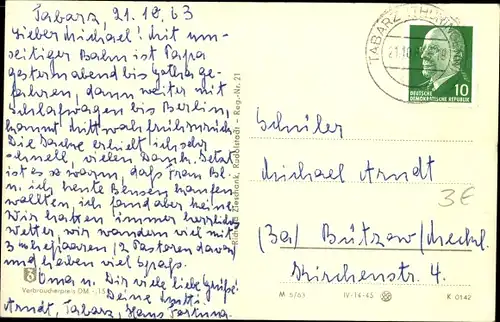 Tabarz, 21.10.63
Lieber Michael! Mit um-
seitiger Bahn ist Papa
gestern abend bis Gotha ge-
fahren, dann weiter mit
Schlafwagen bis Berlin,
kommt mittwoch früh zurück
Die Jacke erhielt ich sehr
schnell, vielen Dank. Jetzt
ist es so warm, daß Frau Bl.
u. ich heute kaufen
wollten, ich fand aber keine.
Wir hatten immer herrliches
Wetter, wir wandern viel mit
3 Ehepaaren (2 Pastoren davon)
und haben viel Spaß.
Oma u. Dir viele liebe Grüße
Deine Mutti.
Arndt, Tabarz, Haus Fortuna
Verbraucherpreis DM -,15
Richard Zieschank, Rudolstadt - Reg.-Nr. 21
TABARZ (THÜR WALD)
21.10.63
10
DEUTSCHE
DEMOKRATISCHE REPUBLIK
Schüler
Michael Arndt
3€
(3a) Bützow/Meckl.
Kirchenstr. 4.
M 5/63 IV-14-45 K 0142